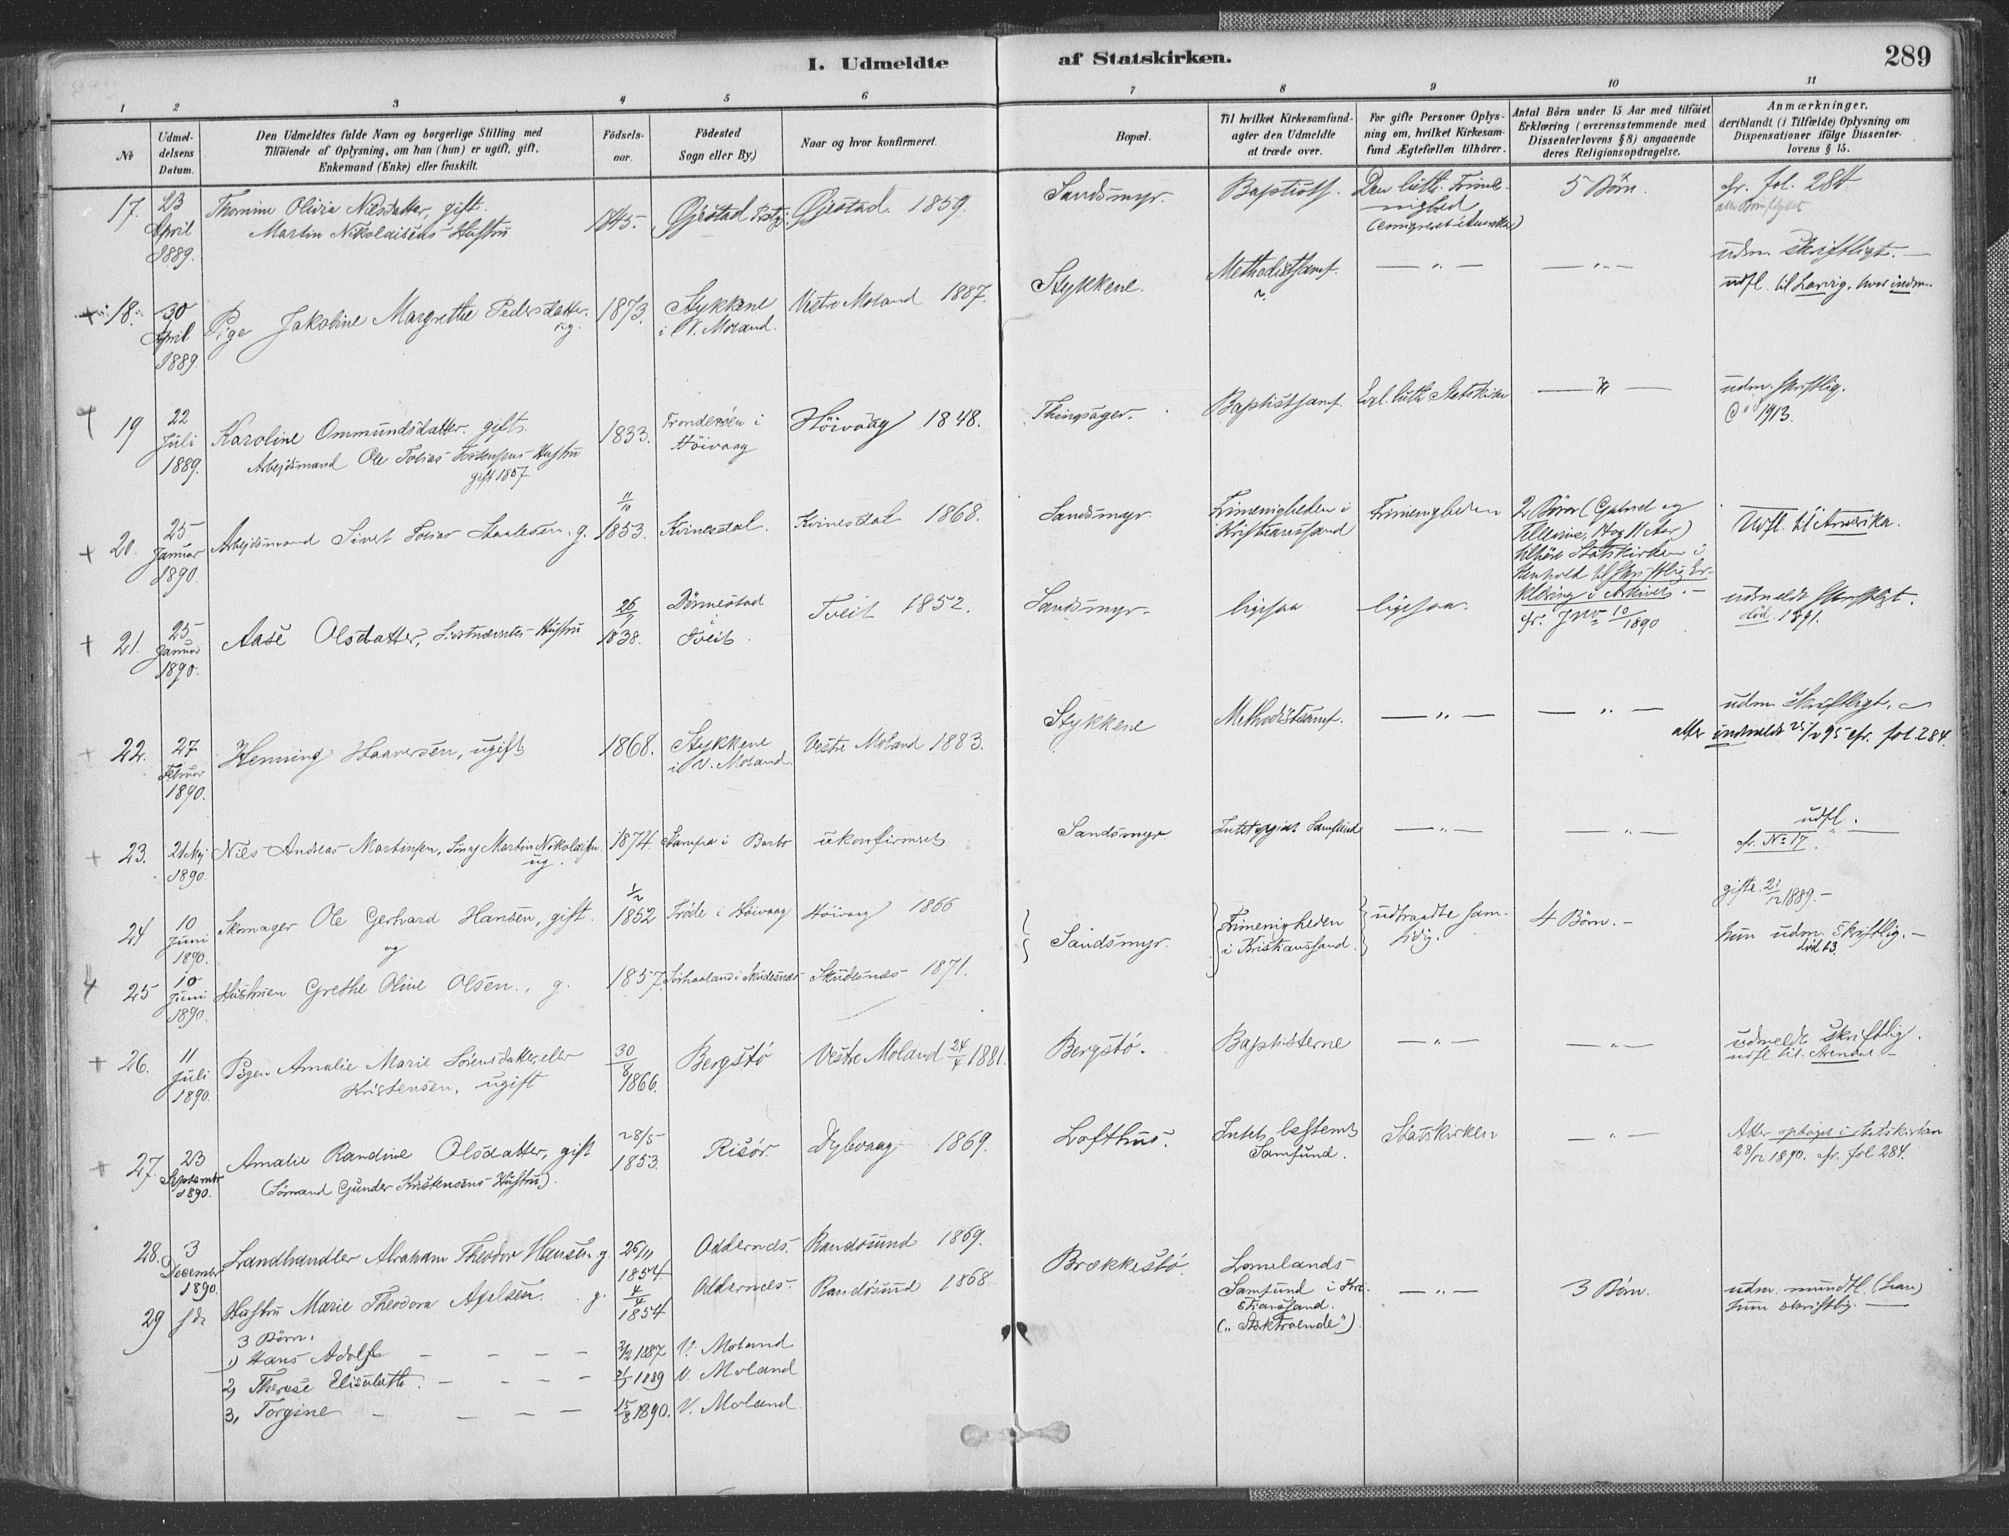 I. Udmeldte af Statskirken. 289
1 2 3 4 5 6 7 8 9 10 11
No
Udmeldelsens Datum.
Den Udmeldtes fulde Navn og borgerlige Stilling med
Tilföiende af Oplysning, om han (hun) er ugift, gift,
Enkemand (Enke) eller fraskilt.
Födselsaar.
Födested
Sogn eller By.)
Naar og hvor konfirmeret.
Bopæl.
Til hvilket Kirkesamfund
agter den Udmeldte
at træde over.
For gifte Personer Oplysning
om, hvilket Kirkesamfund
Ægtefællen tilhörer.
Antal Börn under 15 Aar med tilföiet
Erklæring (overensstemmende med
Dissenterlovens § 8) angaaende
deres Religionsopdragelse.
Anmærkninger,
deriblandt (i Tilfælde) Oplysning om
Dispensationer ifölge Dissenterlovens § 15.
17. 23 April 1889. Thomine Olivia Nilsdatter, gift. 1845. Gjerstad Gjerstad. 1859. Sandsmyr. Baptists. Den luth. Frimenighed 5 Börn. cfr. fol. 284
Martin Nikolaisens Hustru (emigreret i Amerika)
18. 30 April 1889 Pige Jakobine Margrethe Pedersdatter. ug. 1873. Stykkene i V. Moland. Vestre Moland 1887. Stykkene. Methodistsamf. — " — — " — udm. skriftligt. —
udfl. til Larvig, hvor indm.
19 22 Juli 1889. Karoline Ommundsdatter. gift. 1833. Höivaag Höivaag 1848. Thingsager. Baptistsamf. Evl. luth. Statskirke — " — udm. skriftlig.
Arbeidsmand Ole Tobias Hustru 1913.
gift 1857
20. 25 Januar 1890. Arbeidsmand Sivert Tobias Staalesen. g. 11/10 1853. Kvinesdal. Kvinesdal 1868. Sandsmyr Frimenigheden i Kristianssand Frimenigheden 2 Börn (Gabriel og
14 og 11 Aar)
tilhöre Statskirken i
Henhold til skriftlig Erklæring i Arkivet. —
cfr. Jno 10/1890
Udfl. til Amerika.
21. 25 Januar 1890. Aase Olsdatter, Hustru 26/9 1838. Dönnestad Tveit. Tveit 1852. Sandsmyr. ligesaa ligesaa. udmeldt skriftligt.
död. 1891.
22. 27 Februar 1890. Henning Haaversen, ugift 1868. Stykkene i V. Moland. Vestre Moland 1883. Stykkene Methodistsamf. — " — — " — udm. skriftligt. —
atter indmeldt 25/2 95 cfr. fol 284.
23. 21 Mai 1890. Nils Andreas Martinsen, Sön af Martin Nikolaisen ug. 1874. Barbo ukonfirmeret Sandsmyr Intet opgivet Samfund — " — — " — udfl.
cfr. No 17. —
24 10 Juni 1890. Skomager Ole Gerhard Hansen, gift. 1/2 1852 i Höivaag Höivaag 1866 Sandsmyr. Frimenigheden i Kristianssand. udtraadte samtidig. 4 Börn. — gifte 21/12 1889. —
og
hun udm. skriftlig. —
död 13.
25 10 Juni 1890. Hustruen Grethe Oline Olsen., g. 1857 i Skudesnes Skudesnes 1871.
26. 11 Juli 1890. Pigen Amalie Marie Sörensdatter eller 30/8 1866. Bergstö Vestre Moland 24/4 1881. Bergstö. Baptisterne — " — — " — udmeldt skriftlig.
Kristensen, ugift
udfl. til Arendal —
27. 23 September 1890. Amalie Randine Olsdatter, gift 28/5 1853. Risör Dybvaag 1869. Lofthus. Intet bestemt Samfund. Statskirken — " — Atter optaget i Statskirken
(Sömand Gunder Kristensens Hustru). 28/12 1890. cfr. fol 284.
28. 3 December 1890. Landhandler Abraham Theodor Hansen g. 26/11 1854 Oddernes. Randösund 1869. Brækkestö. Lomelands-
Samfund i Kristianssand.
(„Sterktroende").
— " — 3 Börn. udm. mundtl. (han)
hun skriftlig. —
29 sd. Hustru Marie Theodora Axelsen. g. 4/4 1854 Oddernes. Randösund 1868
3 Börn.
1) Hans Adolf — — — — 3/2 1887 V. Moland
2, Therese Elisabeth. — — — 2/1 1889 V. Moland
3, Torgine — — — — 15/8 1890. V. Moland